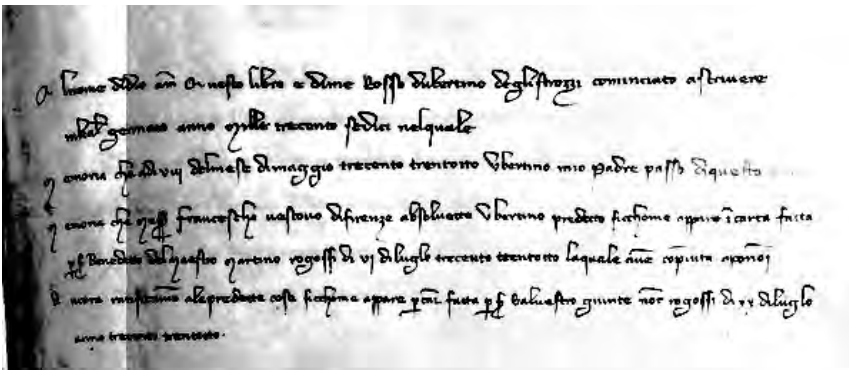 Al nome didio am Questo libro e dime Rosso dubertino deglistrozzi cominciato ascrivere
inkal gennaio anno mille trecento sedici nelquale
Memoria che adi viij delmese dimaggio trecento trentotto Ubertino mio padre passo diquesta
Memoria che mess francescho vescovo difirenze absolvette Ubertino predetto sicchome appare i carta fatta
p s Benedetto delmaestro martino rogossi di vj diluglo trecento trentotto laquale ave copiuta
la predette cose sicchome appare p car fatta p s Salvestro giunte not rogossi di xx diluglo
anno trecento trentotto.